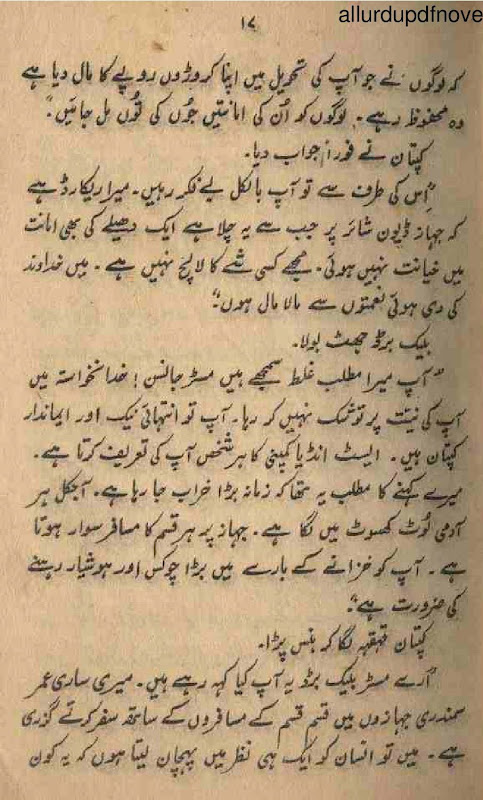 allurdupdfnove
۱۷
کہ لوگوں نے جو آپ کی تحویل میں اپنا کروڑوں روپے کا مال دیا ہے
وہ محفوظ رہے۔ لوگوں کو اُن کی امانتیں جُوں کی تُوں مل جائیں۔"
کپتان نے فوراً جواب دیا۔
"اِس کی طرف سے تو آپ بالکل بے فکر رہیں۔ میرا ریکارڈ ہے
کہ جہاز ڈیون شائر پر جب سے یہ چلا ہے ایک دھیلے کی بھی امانت
میں خیانت نہیں ہوئی۔ مجھے کسی شے کا لالچ نہیں ہے۔ میں خداوند
کی دی ہوئی نعمتوں سے مالا مال ہوں۔"
بلیک برڈ جھٹ بولا۔
"آپ میرا مطلب غلط سمجھے ہیں مسٹر جانسن! خدانخواستہ میں
آپ کی نیت پر تو شک نہیں کر رہا۔ آپ تو انتہائی نیک اور ایماندار
کپتان ہیں۔ ایسٹ انڈیا کمپنی کا ہر شخص آپ کی تعریف کرتا ہے۔
میرے کہنے کا مطلب یہ تھا کہ زمانہ بڑا خراب جا رہا ہے۔ آجکل ہر
آدمی لُوٹ کھسوٹ میں لگا ہے۔ جہاز پر ہر قسم کا مسافر سوار ہوتا
ہے۔ آپ کو خزانے کے بارے میں بڑا چوکس اور ہوشیار رہنے
کی ضرورت ہے۔"
کپتان قہقہہ لگا کر ہنس پڑا۔
"ارے مسٹر بلیک برڈ یہ آپ کیا کہہ رہے ہیں۔ میری ساری عمر
سمندری جہازوں میں قسم قسم کے مسافروں کے ساتھ سفر کرتے گذری
ہے۔ میں تو انسان کو ایک ہی نظر میں پہچان لیتا ہوں کہ یہ کون